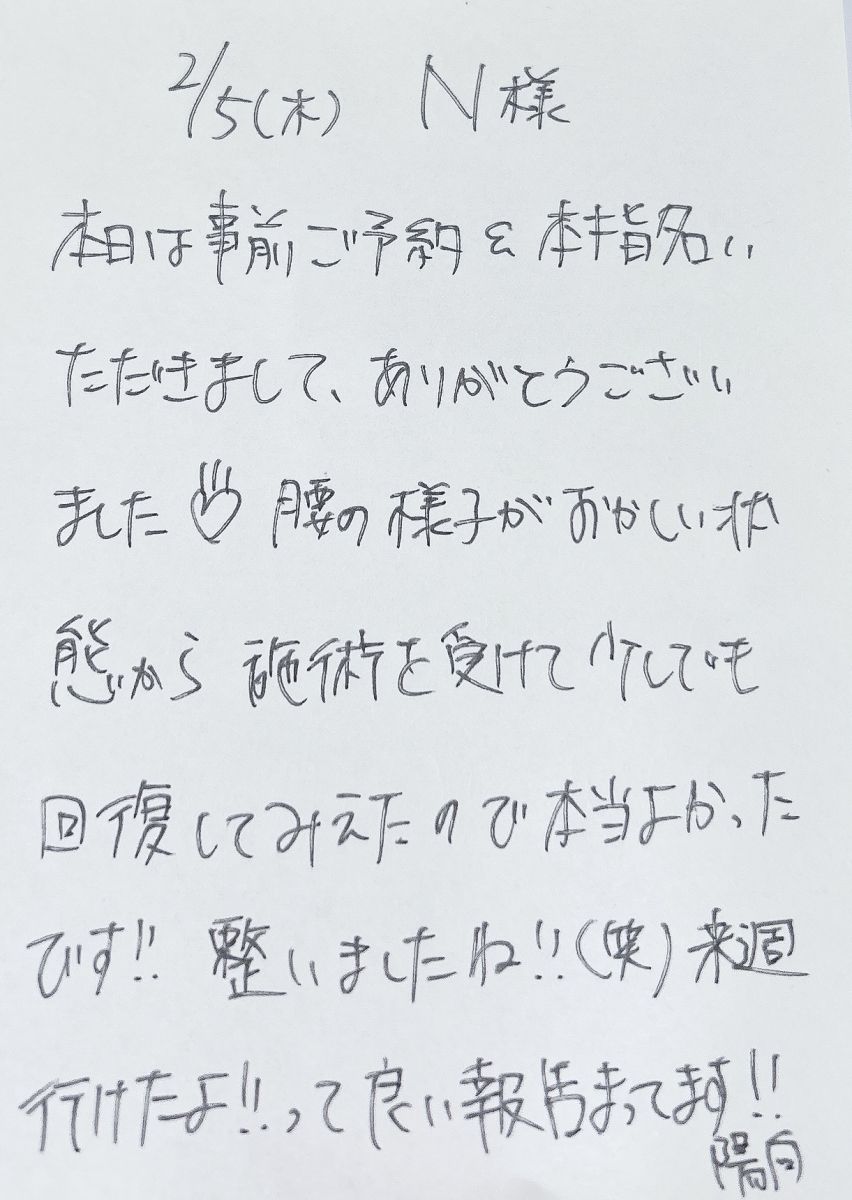 2/5(木) N様
本日は事前ご予約&本指名い
ただきまして、ありがとうござい
ました 腰の様子がおかしい状
態から施術を受けて少しでも
回復してみえたので本当よかった
です!! 整いましたね!!(笑)来週
行けたよ!!って良い報告まってます!!
陽向